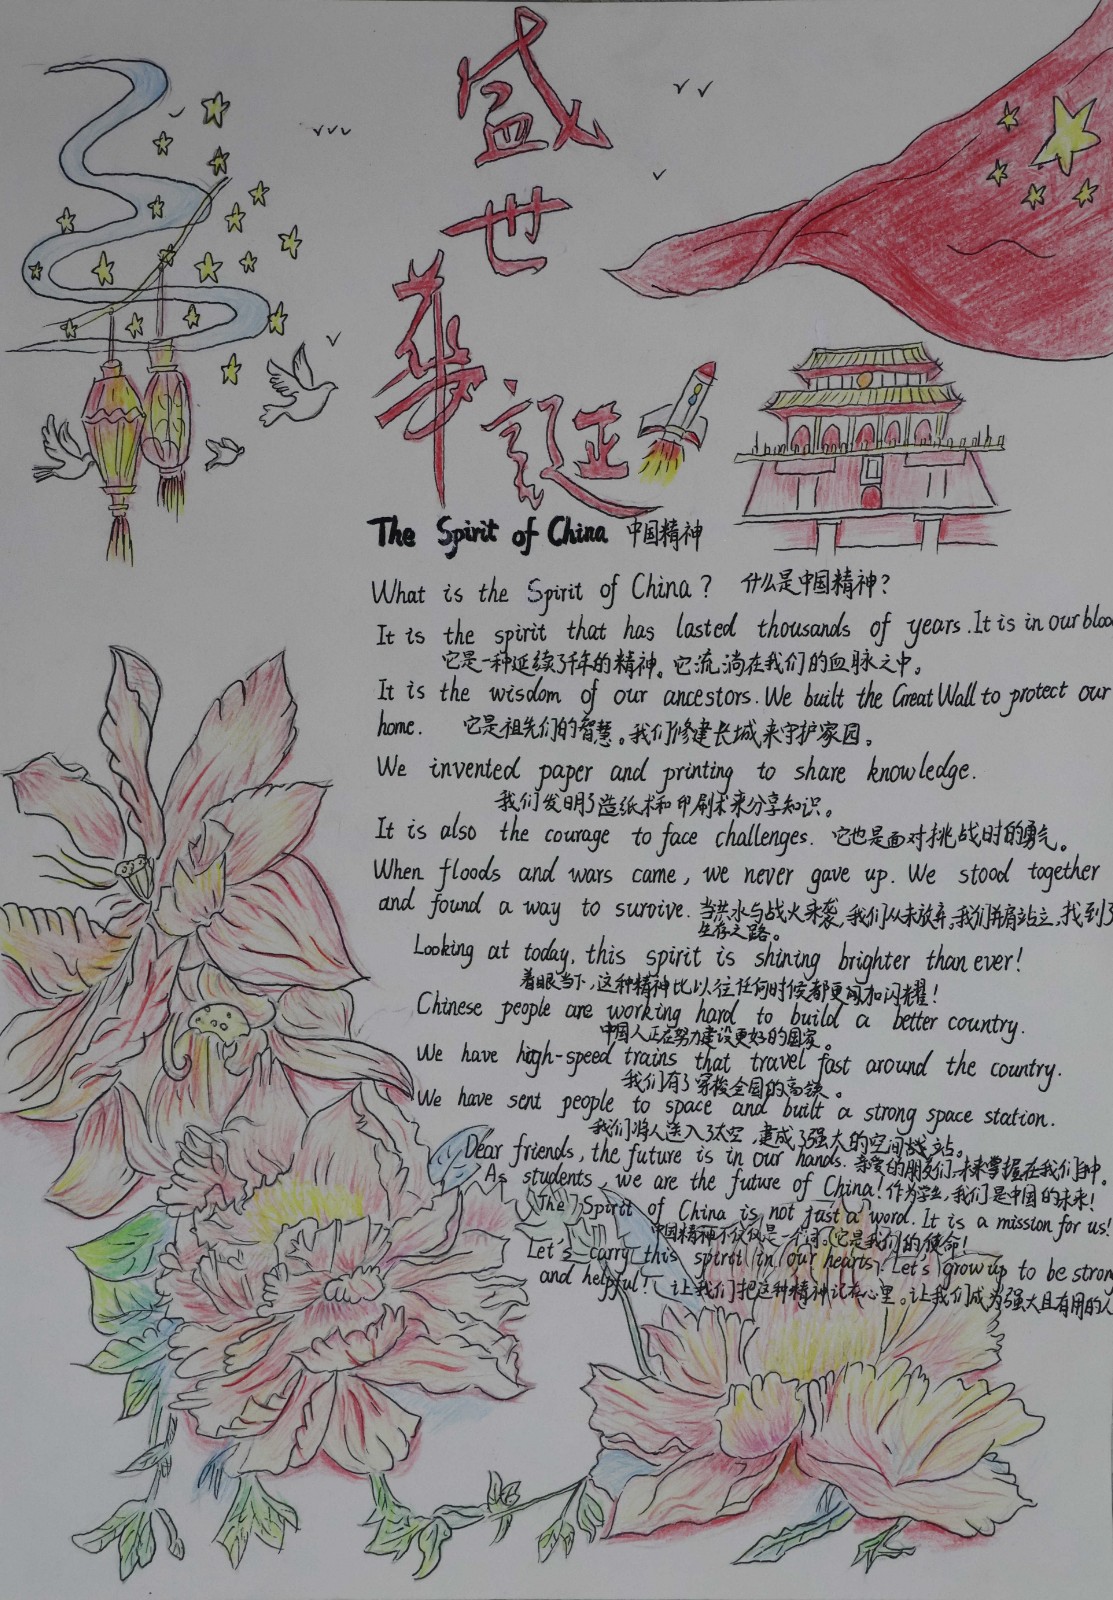 盛世華誕
The Spirit of China 中国精神
What is the Spirit of China? 什么是中国精神?
It is the spirit that has lasted thousands of years. It is in our blood
它是一种延续了千年的精神。它流淌在我们的血脉之中。
It is the wisdom of our ancestors. We built the Great Wall to protect our
home. 它是祖先们的智慧。我们修建长城来守护家园。
We invented paper and printing to share knowledge.
我们发明了造纸术和印刷术来分享知识。
It is also the courage to face challenges. 它也是面对挑战时的勇气。
When floods and wars came, we never gave up. We stood together
and found a way to survive. 当洪水与战火来袭,我们从未放弃。我们并肩站立,找到了
生存之路。
Looking at today, this spirit is shining brighter than ever!
着眼当下,这种精神比以往任何时候都更加闪耀!
Chinese people are working hard to build a better country.
中国人正在努力建设更好的国家。
We have high-speed trains that travel fast around the country.
我们有了穿梭全国的高铁。
We have sent people to space and built a strong space station.
我们将人送入了太空,建成了强大的空间站。
Dear friends, the future is in our hands. 亲爱的朋友们,未来掌握在我们手中。
As students, we are the future of China! 作为学生,我们是中国的未来!
The Spirit of China is not just a word. It is a mission for us!
中国精神不仅仅是一个词。它是我们的使命!
Let's carry this spirit in our hearts. Let's grow up to be strong
and helpful! 让我们把这种精神记在心里。让我们成为强大且有用的人